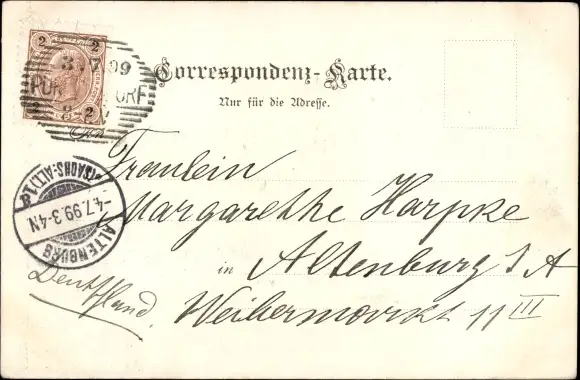 Correspondenz-Karte.
Nur für die Adresse.
2 2
3 7 99
PUR ORF
2 2
Fraulein
Margarethe Harpke
in Altenburg S A
Weibermarkt 11 III
Deutschland.
ALTENBURG
-4.7.99.3-4N
(SACHS.-ALT.) 1 B